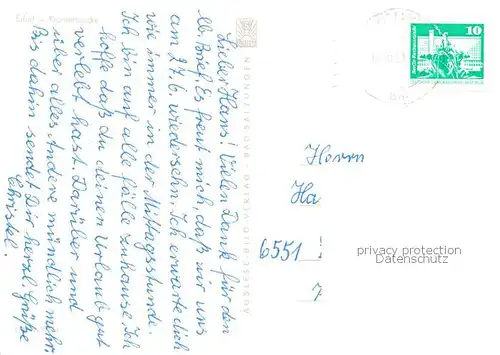 Erfurt - Krämerbrücke
Lieber Hans! Vielen Dank für den
lb. Brief. Es freut mich, daß wir uns
am 27.6. wiedersehn. Ich erwarte dich
wie immer in der Mittagsstunde.
Ich bin auf alle fälle zuhause. Ich
hoffe daß du deinen Urlaub gut
verlebt hast. Darüber und
über alles Andere mündlich mehr.
Bis dahin sendet Dir herzl. Grüße
Christel.
AUSLESE-BILD-VERLAG · BAD SALZUNGEN
10
Herrn
Ha
6551
privacy protection
Datenschutz